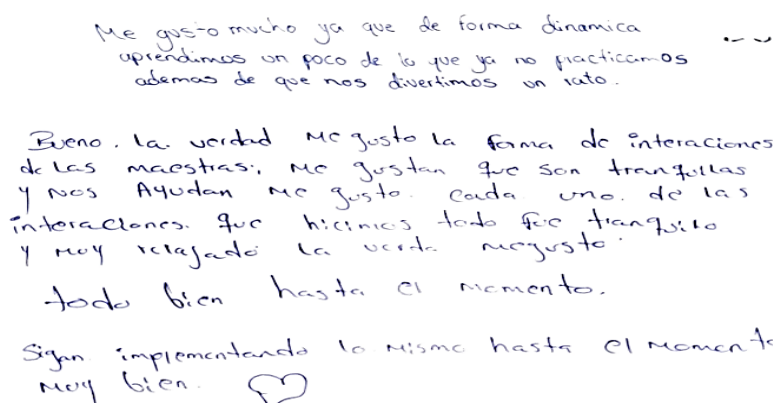 Me gusto mucho ya que de forma dinamica
aprendimos un poco de lo que ya no practicamos
ademas de que nos divertimos un rato.
Bueno. la. verdad me gusto la forma de interaciones
de las maestras., me gustan que son tranquilas
y Nos Ayudan me gusto. cada uno. de las
interaciones. que hicimos todo fue tranquilo
y muy relajado la verda megusto.
todo bien hasta el momento.
Sigan implementando lo mismo hasta el momento
muy bien.